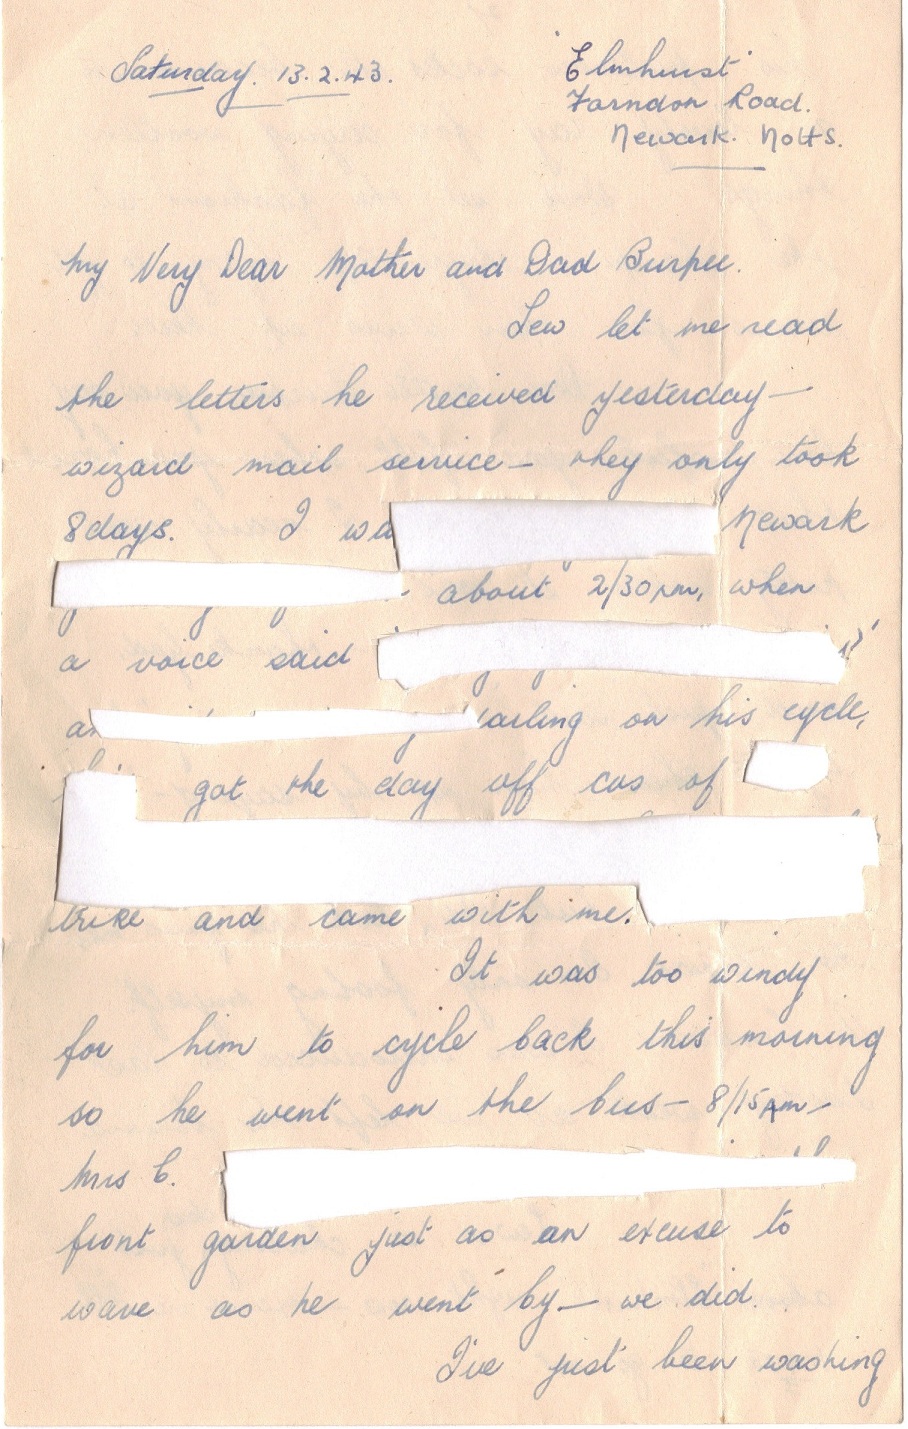 Saturday. 13.2.43.
'Elmhurst'
Farndon Road.
Newark. Notts.
My Very Dear Mother and Dad Burpee.
Lew let me read
the letters he received yesterday—
wizard mail service— they only took
8 days. I Newark
about 2/30pm, when
a voice said
on his cycle,
got the day off cos of
and came with me.
It was too windy
for him to cycle back this morning
so he went on the bus— 8/15am—
Mrs C.
front garden just as an excuse to
wave as he went by— we did.
I've just been washing